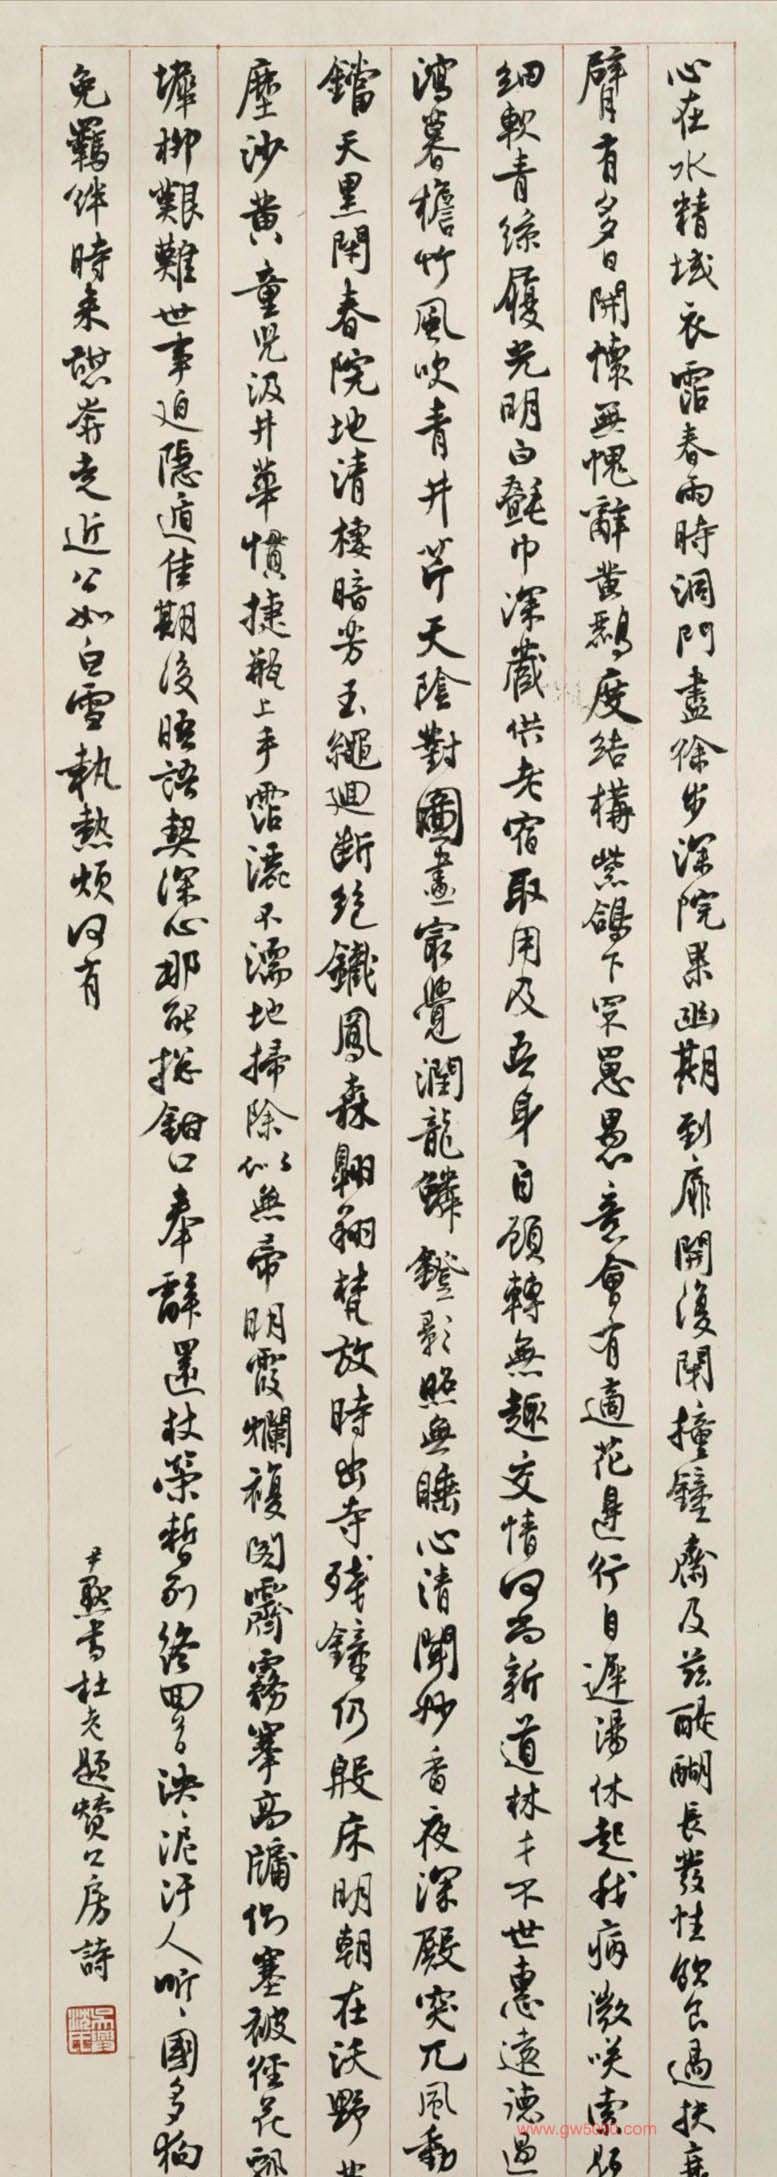 心在水精域衣霑春雨時洞門盡徐步深院果幽期到扉開復閉撞鐘齋及茲醍醐長發性飲食過扶衰
臂有多日開懷無愧辭黃鸝度結構紫鴿下罘罳愚意會有適花邊行自遲湯休起我病微咲索題
細軟青絲履光明白氎巾深藏供老宿取用及吾身自顧轉無趣交情何尚新道林才不世惠遠德過
瀉暮檐竹風吹青井芹天陰對圖畫最覺潤龍鱗鐙影照無睡心清聞妙香夜深殿突兀風動
鐺天黑閉春院地清棲暗芳玉繩迴斷絕鐵鳳森翱翔梵放時出寺殘鐘仍殷床明朝在沃野苦
塵沙黃童兒汲井華慣捷瓶上手霑灑不濡地掃除似無帚明霞爛複閣霽霧搴高牖側塞被徑花飄
墀柳艱難世事迫隱遁佳期後晤語契深心那能總鉗口奉辭還杖策暫別終回首泱〻泥汙人听〻國多狗
免羈絆時來憩奔走近公如白雪執熱煩何有
尹默書杜老題贊公房詩
吳興沈氏
www.gw5000.com